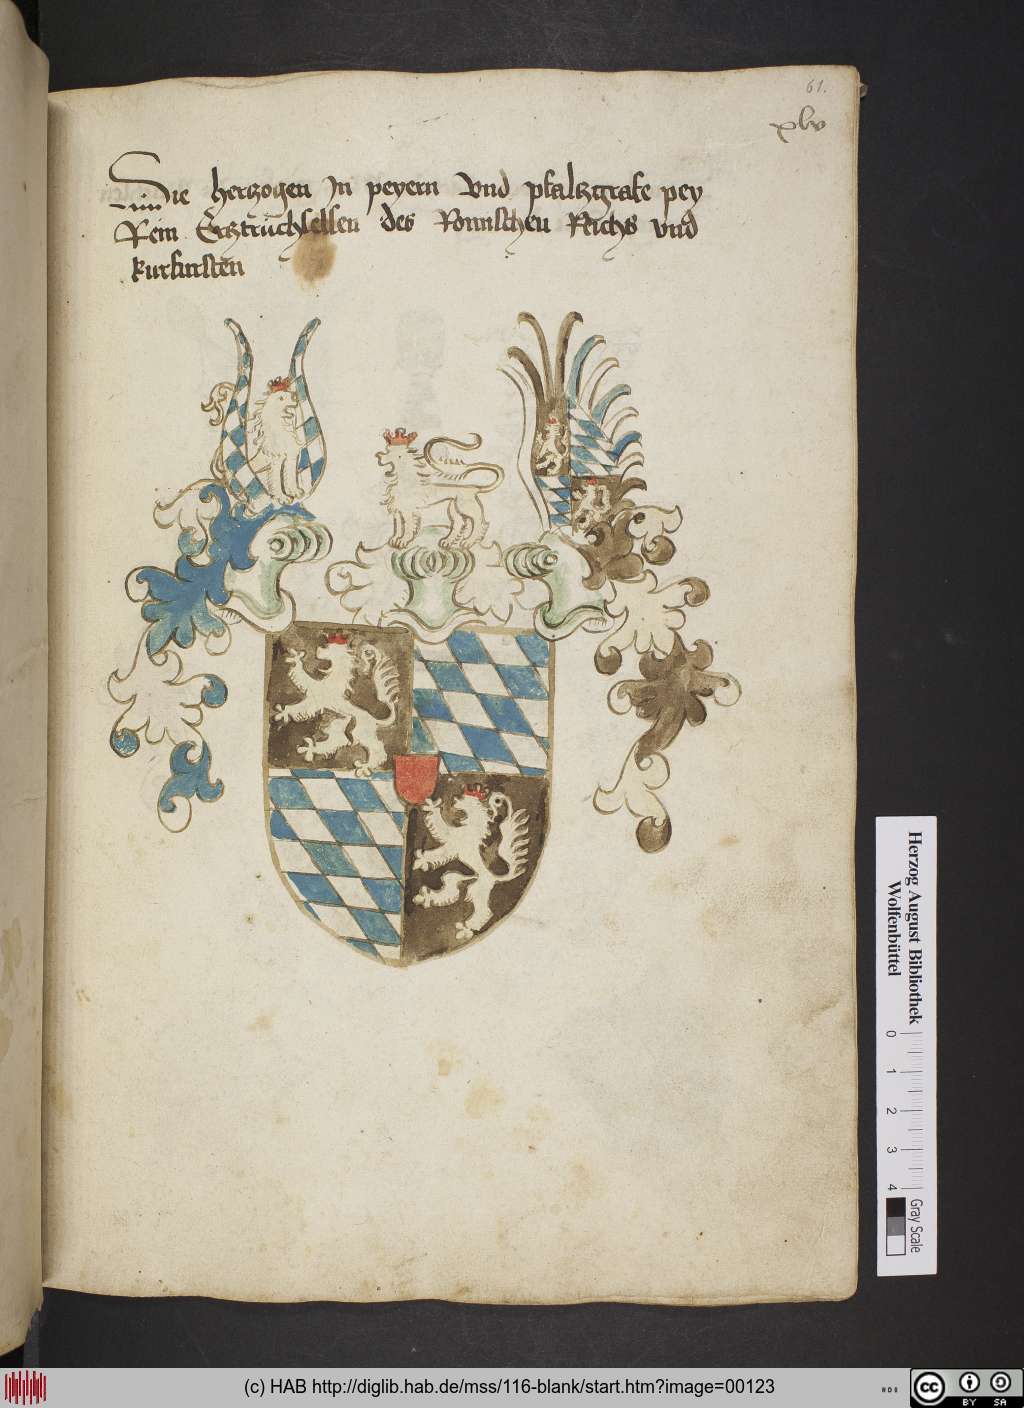 61.
xlv
Die herzogen In peyern Vnd pfaltzgrafe pey
Rein Ertztruchsessen des Romischen Reichs vnd
kurfursten
Herzog August Bibliothek
Wolfenbüttel
0 1 2 3 4
Gray Scale
(c) HAB http://diglib.hab.de/mss/116-blank/start.htm?image=00123
cc BY SA